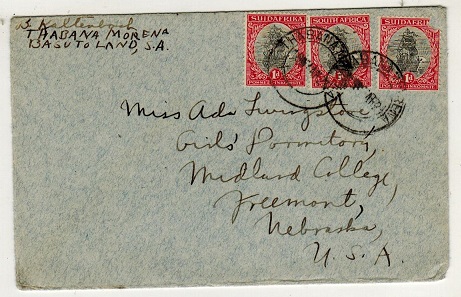 THABANA MORENA
BASUTOLAND, S.A.
SUIDAFRIKA
SOUTH AFRICA
SUIDAFRIKA
1D
1D
1D
Miss Ada Livingstone
Girls' Dormitory,
Midland College,
Freemont,
Nebraska,
U.S.A.